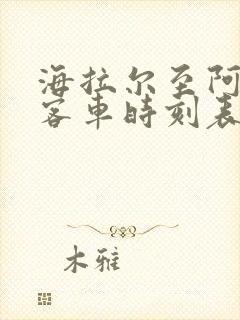 海拉尔至阿
客車時刻表
木雅